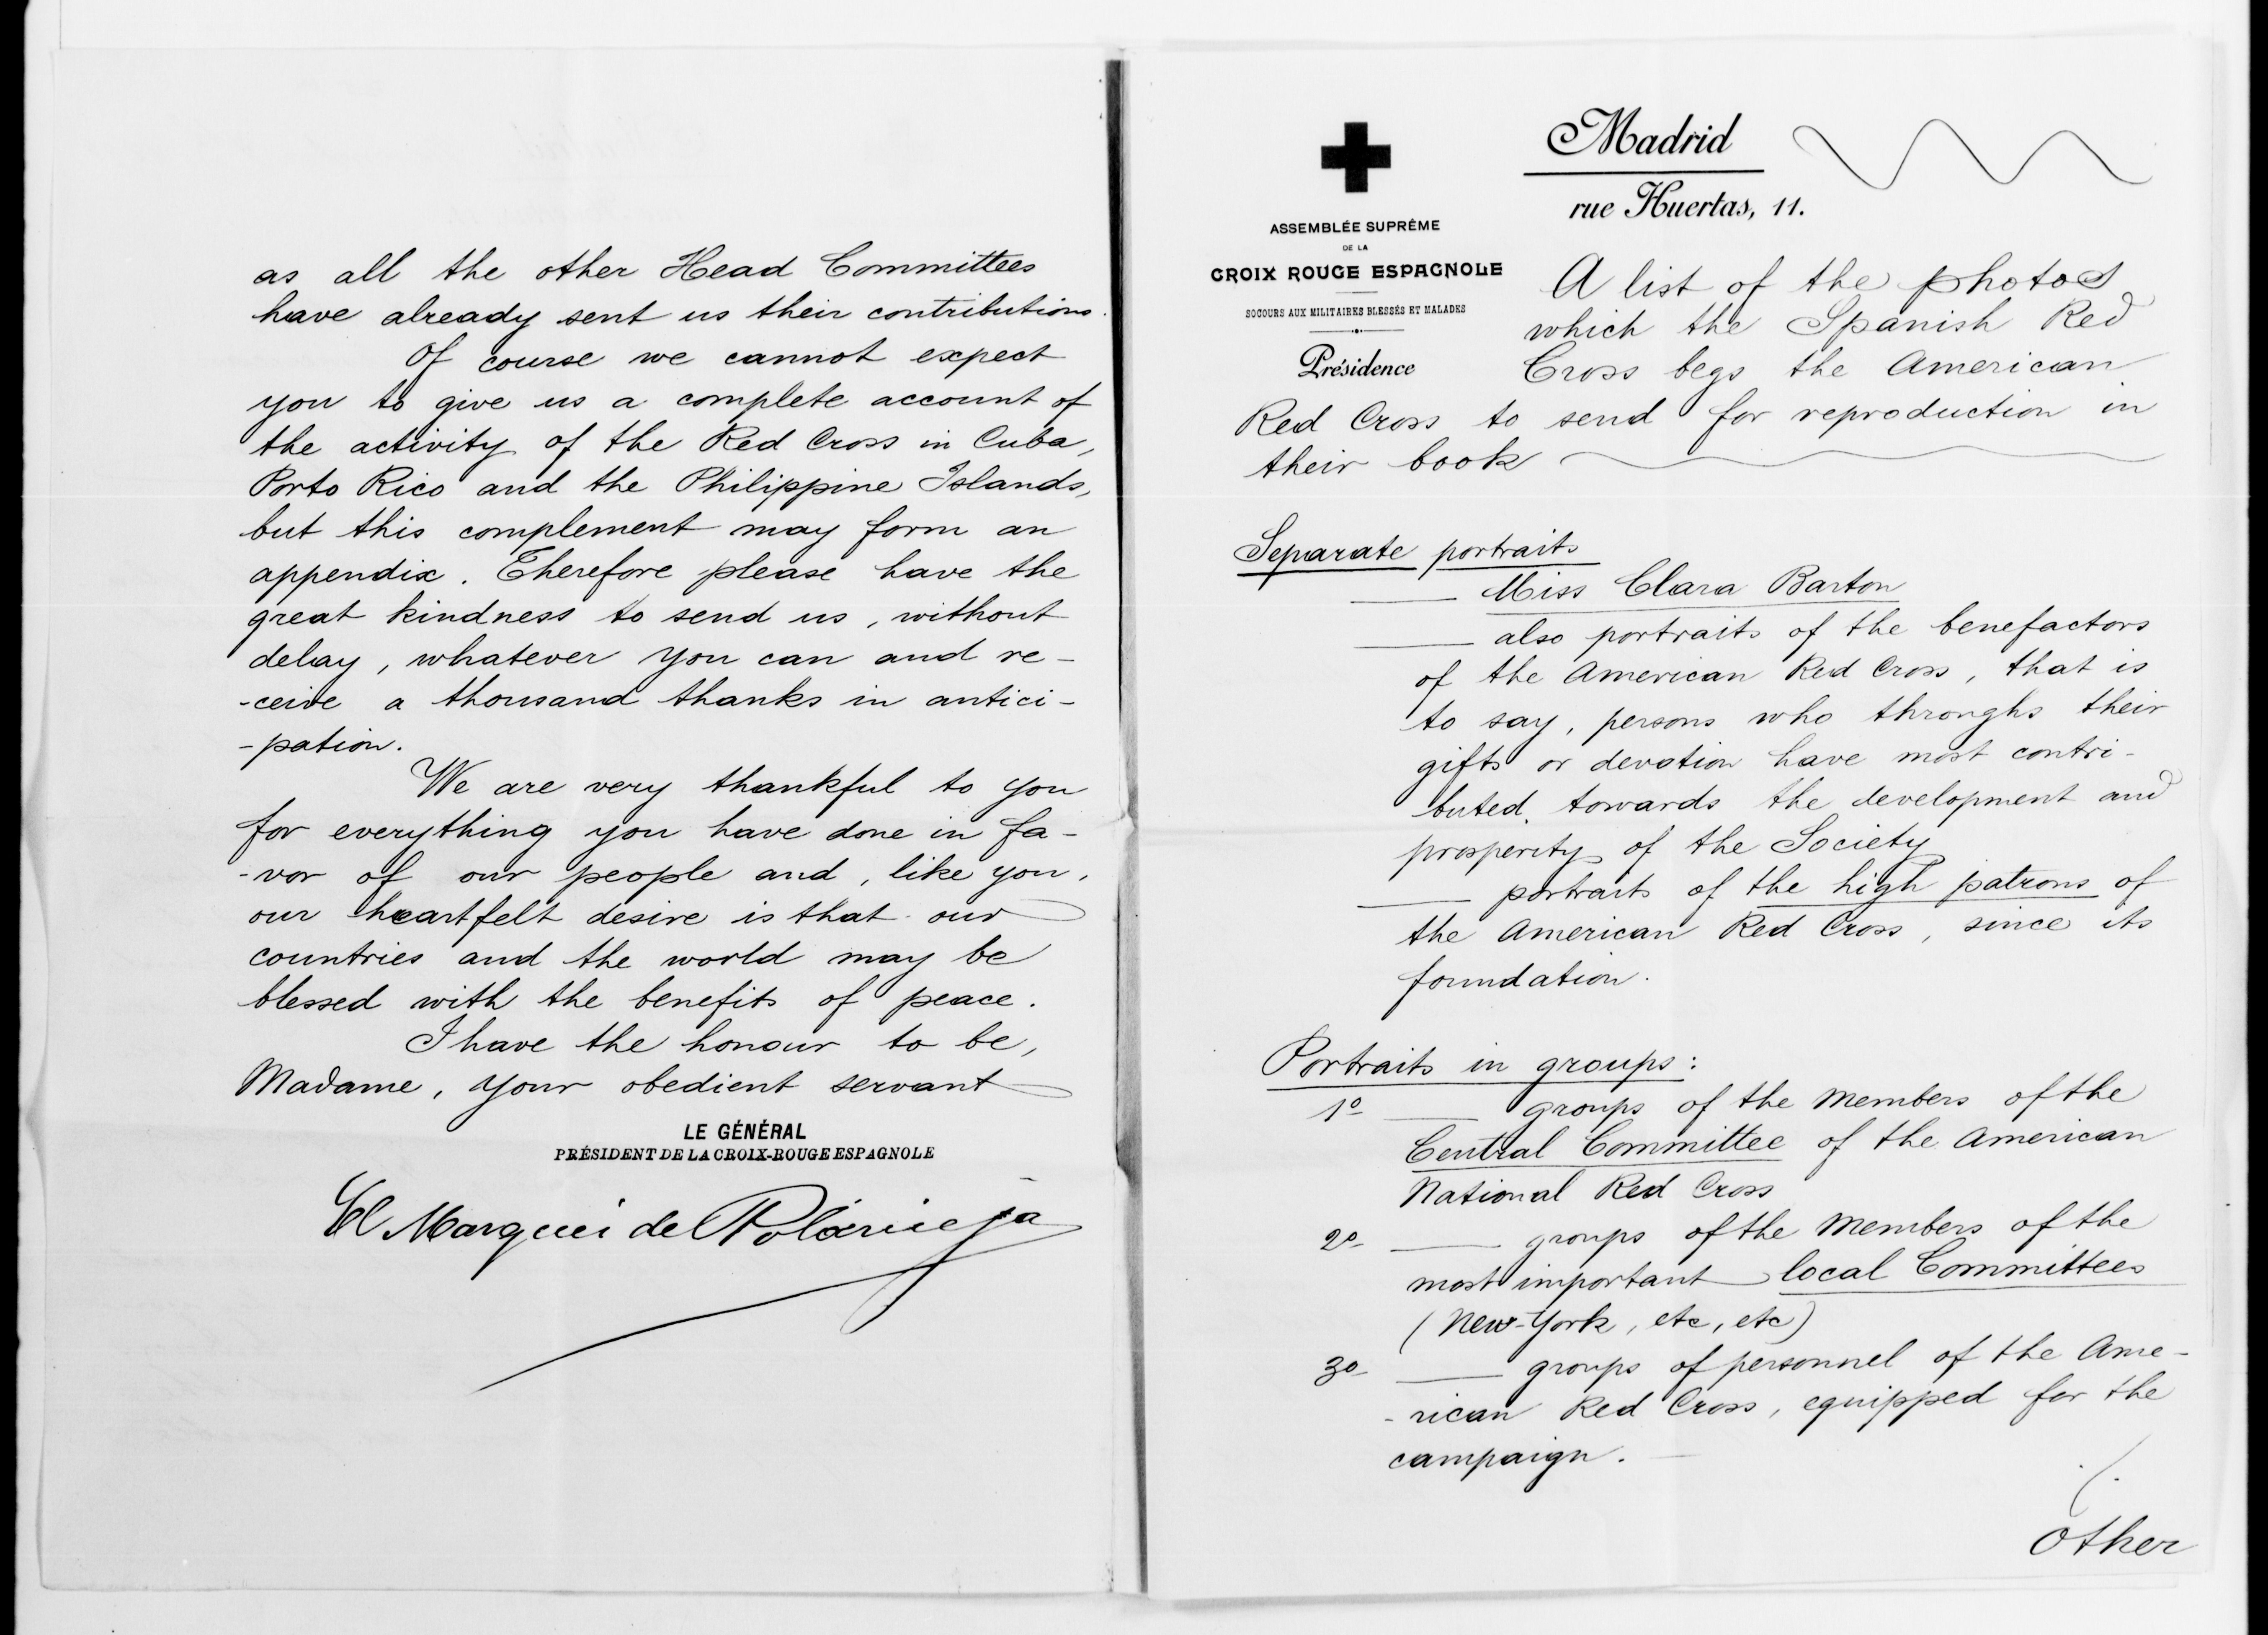 as all the other Head Committees
have already sent us their contributions.
Of course we cannot expect
you to give us a complete account of
the activity of the Red Cross in Cuba,
Porto Rico and the Philippine Islands,
but this complement may form an
appendix. Therefore please have the
great kindness to send us, without
delay, whatever you can and re-
-ceive a thousand thanks in antici-
-pation.
We are very thankful to you
for everything you have done in fa-
-vor of our people and, like you,
our heartfelt desire is that our
countries and the world may be
blessed with the benefits of peace.
I have the honour to be,
Madame, your obedient servant
LE GÉNÉRAL
PRÉSIDENT DE LA CROIX-ROUGE ESPAGNOLE
El Marqués de Polavieja
Madrid
rue Huertas, 11.
ASSEMBLÉE SUPRÊME
DE LA
CROIX ROUGE ESPAGNOLE
SOCOURS AUX MILITAIRES BLESSÉS ET MALADES
Présidence
A list of the photos
which the Spanish Red
Cross begs the American
Red Cross to send for reproduction in
their book
Separate portraits
Miss Clara Barton
also portraits of the benefactors
of the American Red Cross, that is
to say, persons who throughs their
gifts or devotion have most contri-
buted towards the development and
prosperity of the Society
portraits of the high patrons of
the American Red Cross, since its
foundation.
Portraits in groups:
1º groups of the members of the
Central Committee of the American
National Red Cross
2º groups of the members of the
most important local Committees
(New-York, etc, etc)
3º groups of personnel of the Ame-
-rican Red Cross, equipped for the
campaign.
./.
Other